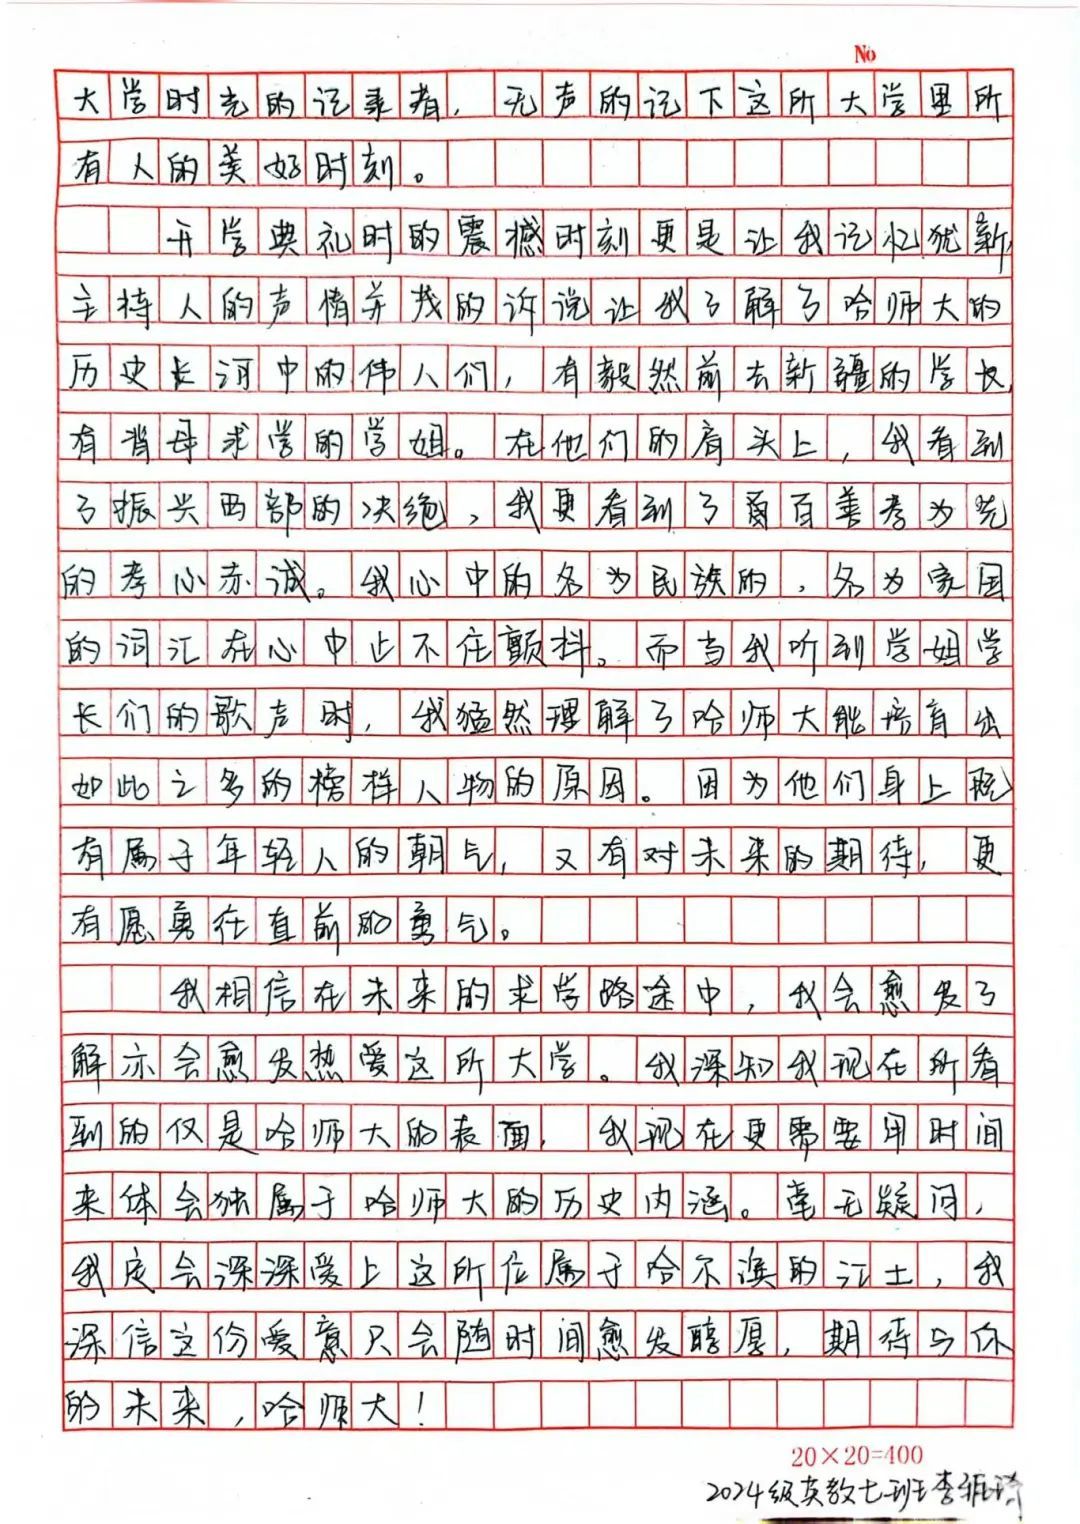 No
大学时光的记录者，无声的记下这所大学里所
有人的美好时刻。
开学典礼时的震撼时刻更是让我记忆犹新，
主持人的声情并茂的诉说让我了解了哈师大的
历史长河中的伟人们，有毅然前去新疆的学长，
有背母求学的学姐。在他们的肩头上，我看到
了振兴西部的决绝，我更看到了百善孝为先
的孝心赤诚。我心中的名为民族的，名为家国
的词汇在心中止不住颤抖。而当我听到学姐学
长们的歌声时，我猛然理解了哈师大能培育出
如此之多的榜样人物的原因。因为他们身上既
有属于年轻人的朝气，又有对未来的期待，更
有愿勇往直前的勇气。
我相信在未来的求学路途中，我会愈发了
解亦会愈发热爱这所大学。我深知我现在所看
到的仅是哈师大的表面，我现在更需要用时间
来体会独属于哈师大的历史内涵。毫无疑问，
我定会深深爱上这所位属于哈尔滨的江土，我
深信这份爱意只会随时间愈发醇厚，期待与你
的未来，哈师大！
20×20=400
2024级英教七班李